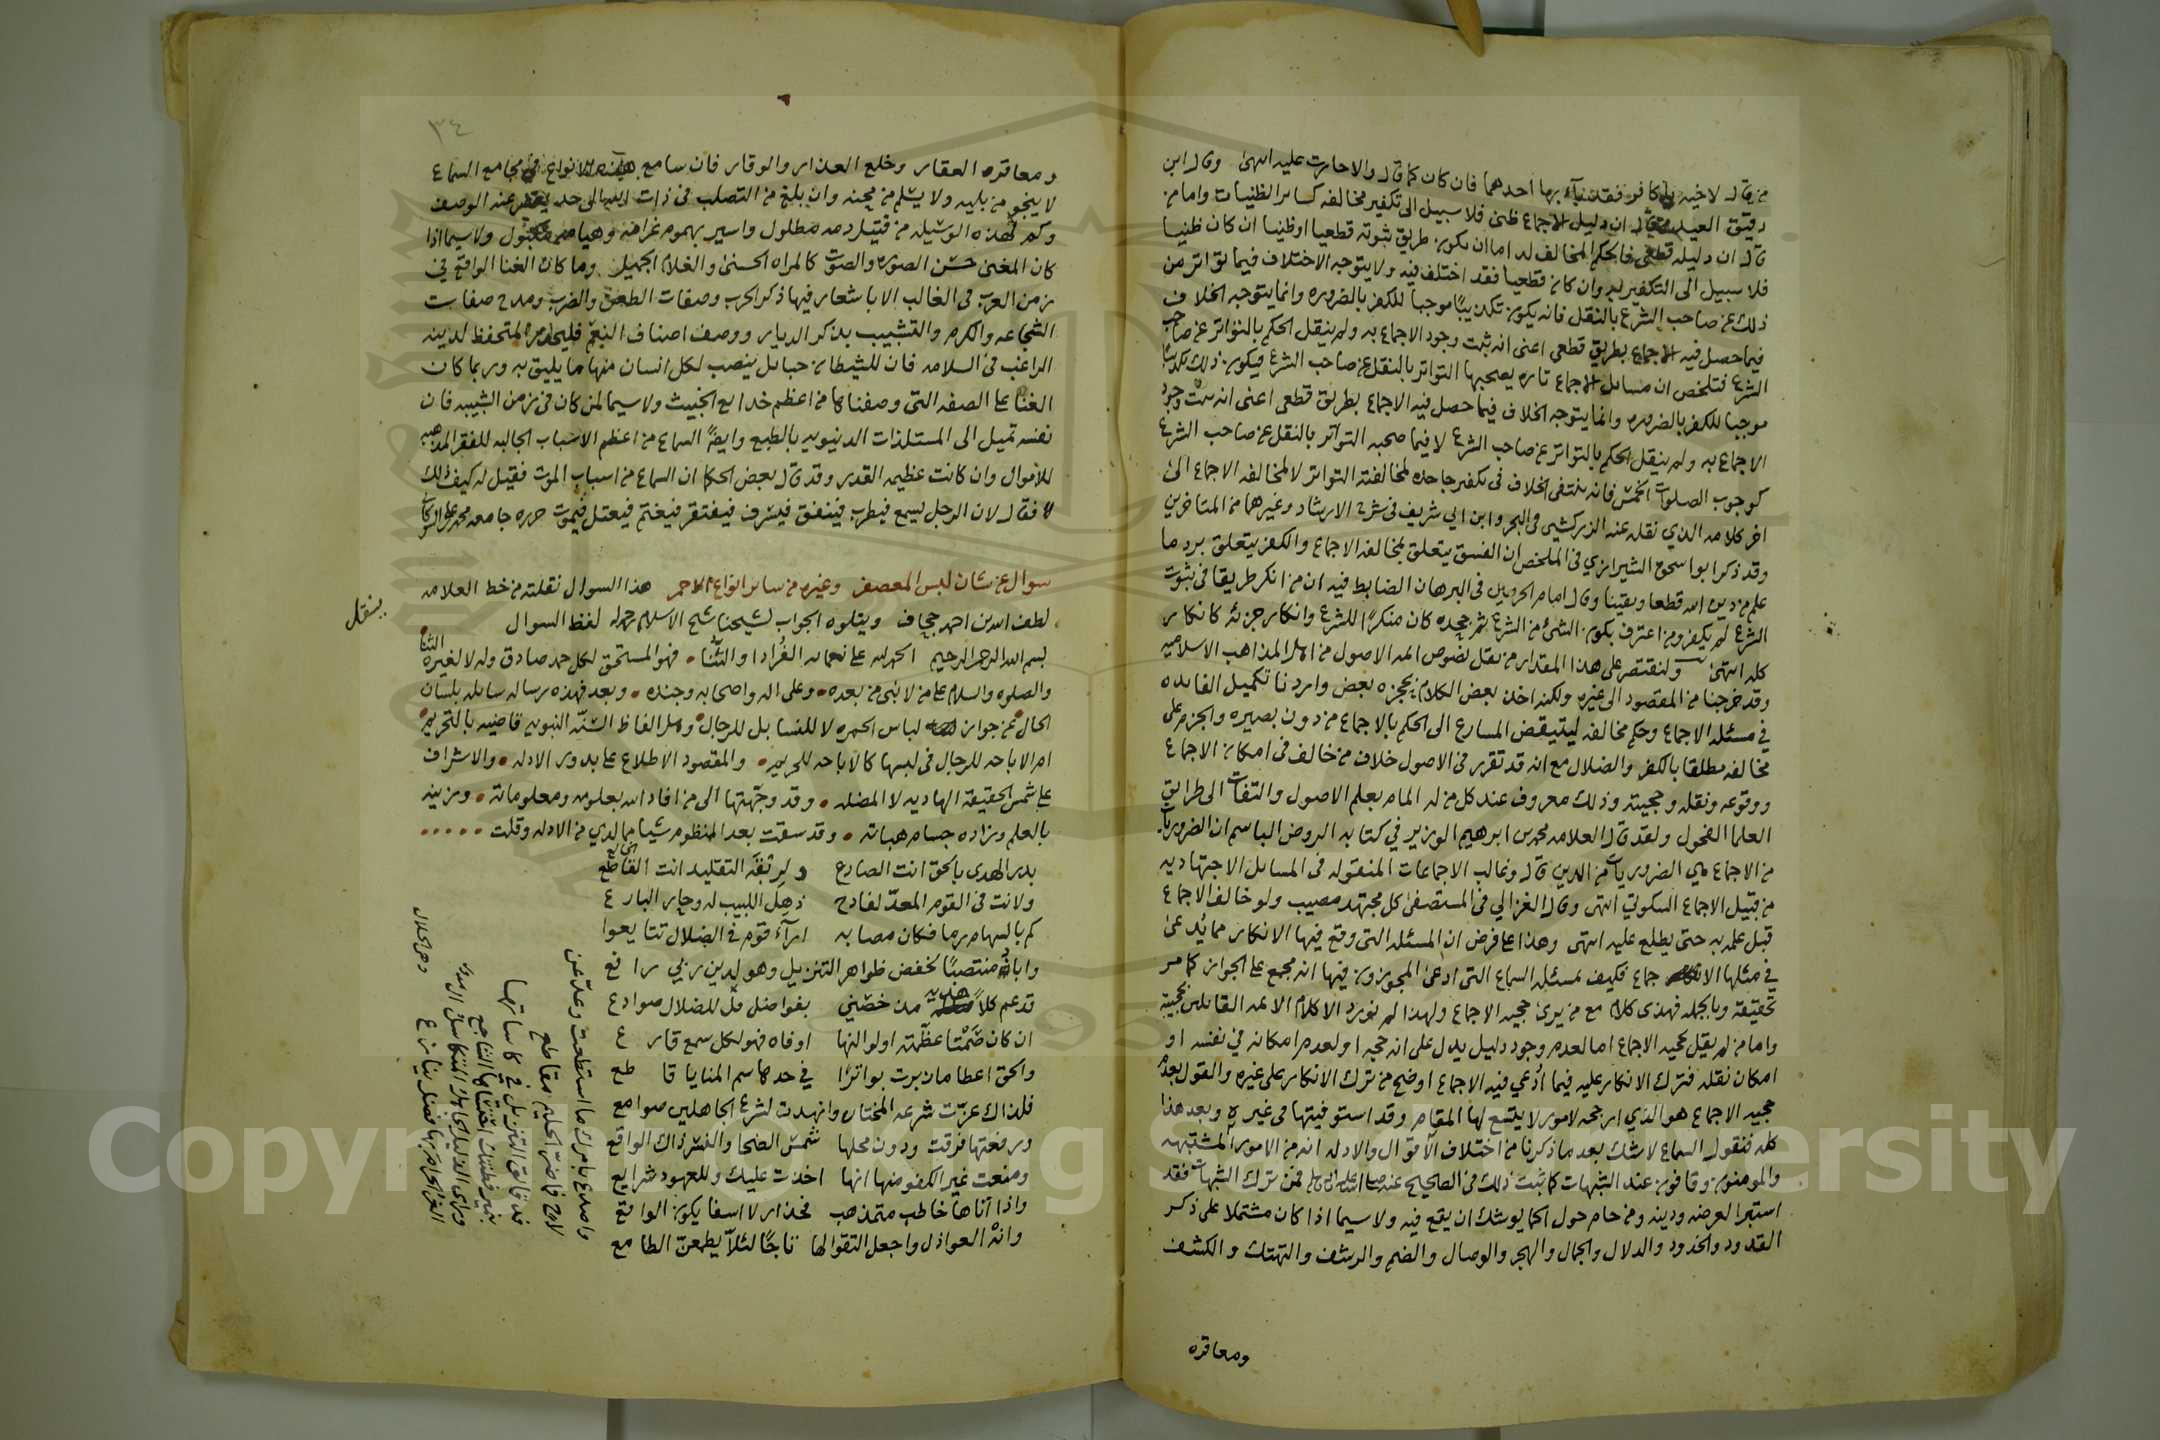 من قال لاخيه يا كافر فقد باء بها احدهما فان كان كما قال والا حارت عليه انتهى وقال ابن
دقيق العيد من قال ان دليل الاجماع ظني فلا سبيل الى تكفير مخالفه كسائر الظنيات واما من
قال ان دليله قطعي فالحكم المخالف له اما ان يكون طريق ثبوته قطعيا او ظنيا ان كان ظنيا
فلا سبيل الى التكفير به وان كان قطعيا فقد اختلف فيه ولا يتوجه الاختلاف فيما تواتر من
ذلك عن صاحب الشرع بالنقل فانه يكون تكذيبا موجبا للكفر بالضروره وانما يتوجه الخلاف
فيما حصل فيه الاجماع بطريق قطعي اعنى انه ثبت وجود الاجماع به ولم ينقل الحكم بالتواتر عن صاحب
الشرع فتلخص ان مسائل الاجماع تاره يصحبها التواتر بالنقل عن صاحب الشرع فيكون ذلك تكذيبا
موجبا للكفر بالضروره وانما يتوجه الخلاف فيما حصل فيه الاجماع بطريق قطعي اعنى انه ثبت وجود
الاجماع به ولم ينقل الحكم بالتواتر عن صاحب الشرع لا فيما صحبه التواتر بالنقل عن صاحب الشرع
كوجوب الصلوات الخمس فانه ينتفى الخلاف في تكفير جاحده لمخالفته التواتر لا لمخالفه الاجماع الى
اخر كلامه الذي نقله عنه الزركشي في البحر وابن ابي شريف في شرح الارشاد وغيرهما من المتاخرين
وقد ذكر ابو اسحق الشيرازي في الملخص ان الفسق يتعلق بمخالفه الاجماع والكفر يتعلق برد ما
علم من دين الله قطعا ويقينا وقال امام الحرمين في البرهان الضابط فيه ان من انكر طريقا في ثبوت
الشرع لم يكفر ومن اعترف بكون الشئ من الشرع ثم جحده كان منكرا للشرع وانكار جزئه كانكار
كله انتهى ولنقتصر على هذا المقدار من نقل نصوص ائمه الاصول من اهل المذاهب الاسلاميه
وقد خرجنا من المقصود الى غيره ولكنه اخذ بعض الكلام بحجزه بعض واردنا تكميل الفايده
في مسئله الاجماع وحكم مخالفه ليتيقض المسارع الى الحكم بالاجماع من دون بصيره والجزم على
مخالفه مطلقا بالكفر والضلال مع انه قد تقرر في الاصول خلاف من خالف في امكان الاجماع
ووقوعه ونقله وحجيته وذلك معروف عند كل من له المام بعلم الاصول والتفات الى طرايق
العلما الفحول ولقد قال العلامه محمد بن ابرهيم الوزير في كتابه الروض الباسم ان الضروريات
من الاجماع هي الضروريات من الدين قال وغالب الاجماعات المنقوله في المسائل الاجتهاديه
من قبيل الاجماع السكوتي انتهى وقال الغزالي في المستصفى كل مجتهد مصيب ولو خالف الاجماع
قبل علمه به حتى يطلع عليه انتهى وهذا على فرض ان المسئله التي وقع فيها الانكار مما يدعى
في مثلها الاجماع فكيف بمسئله السماع التي ادعى المجوزون فيها انه مجمع على الجواز كما مر
تحقيقه وبالجمله فهذى كلام مع من يرى حجيه الاجماع ولهذا لم نورد الا كلام الائمه القائلين بحجيته
واما من لم يقل بحجيه الاجماع اما لعدم وجود دليل يدل على انه حجه او لعدم امكانه في نفسه او
امكان نقله فترك الانكار عليه فيما ادعي فيه الاجماع اوضح من ترك الانكار على غيره والقول بعدم
حجيه الاجماع هو الذي ارجحه لامور لا يتسع لها المقام وقد استوفيتها في غيره وبعد هذا
كله فنقول السماع لا شك بعد ما ذكرنا من اختلاف الاقوال والادله انه من الامور المشتبهه
والمومنون وقافون عند الشبهات كما ثبت ذلك في الصحيح عنه صلى الله عليه وسلم فمن ترك الشبهات فقد
استبرا لعرضه ودينه ومن حام حول الحما يوشك ان يقع فيه ولا سيما اذا كان مشتملا على ذكر
القدود والخدود والدلال والجمال والهجر والوصال والضم والرشف والتهتك والكشف
ومعاقره
٣٤
ومعاقره العقار وخلع العذار والوقار فان سامع هذه الانواع في مجامع السماع
لا ينجو من بليه ولا يسلم من محنه وان بلغ من التصلب في ذات الله الى حد يقصر عنه الوصف
وكم لهذه الوسيله من قتيل دمه مطلول واسير بهموم غرامه وهيامه مكبول ولا سيما اذا
كان المغني حسن الصوره والصوت كالمراه الحسنى والغلام الجميل وما كان الغنا الواقع في
زمن العرب في الغالب الا باشعار فيها ذكر الحرب وصفات الطعن والضرب ومدح صفات
الشجاعه والكرم والتشبيب بذكر الديار ووصف اصناف النعم فليحذر المتحفظ لدينه
الراغب في السلامه فان للشيطان حبايل ينصب لكل انسان منها ما يليق به وربما كان
الغنا على الصفه التي وصفناها من اعظم خدايع الخبيث ولا سيما لمن كان في زمن الشبيبه فان
نفسه تميل الى المستلذات الدنيويه بالطبع وايضا السماع من اعظم الاسباب الجالبه للفقر المذهبه
للاموال وان كانت عظيمه القدر وقد قال بعض الحكما ان السماع من اسباب الموت فقيل له كيف ذلك
فقال لان الرجل يسمع فيطرب فينفق فيسرف فيفتقر فيغتم فيعتل فيموت حرره جامعه محمد علي الشوكاني
سوال عن شان لبس المعصفر وغيره من ساير انواع الاحمر هذا السوال نقلته من خط العلامه
لطف الله بن احمد جحاف ويتلوه الجواب لشيخنا شيخ الاسلام رحمه الله لفظ السوال
ينقل
بسم الله الرحمن الرحيم الحمد لله على نعمائه الفرادا والثنا فهو المستحق لكل حمد صادق وله لا لغيره الثنا
والصلوه والسلام على من لا نبي من بعده وعلى اله واصحابه وجنده وبعد فهذه رساله سايله بلسان
الحال عن جواز لباس الحمره لا للنسا بل للرجال وهل الفاظ السنه النبويه قاضيه بالتحريم
ام الاباحه للرجال في لبسها كالاباحه للحريم والمقصود الاطلاع على بدور الادله والاشراف
على شمس الحقيقه الهاديه لا المضله وقد وجهتها الى من افاد الله بعلومه ومعلوماته وزينه
بالعلم وزاده جسام هباته وقد سقت بعد المنظوم شيا مما لدي من الادله وقلت
بدر الهدى بالحق انت الصادع ولربقه التقليد انت القاطع
ولانت في القوم المعد لفادح ذهل اللبيب له وحار البارع
كم بالسهام رما فكان مصابه اراء قوم في الضلال تتايعوا
واباد منتصبا لخفض ظواهر التنزيل وهو لدين ربي رافع
قد عم كلا هديه مذ خصني بفواضل فل للضلال صوادع
ان كان ضمتا عظمته اولوا النها اوفاه فهو لكل سمع قارع
والحق اعطاه ان برت بواترا في حدها سم المنايا قاطع
فلذاك عزت شرعه المختار وانهدت لشرع الجاهلين صوامع
ورفعتها فرقت ودون محلها شمس الضحا والنسر ذاك الواقع
ومنعت غير الكفو منها انها اخذت عليك وللعهود شرايع
واذا اتاها خاطب متمذهب فحذار لا اسفا يكون الواقع
وانه العواذل واجعل التقوا لها تاجا لئلا يطمعن الطامع
واصدع بامرك ما استطعت وعد عن